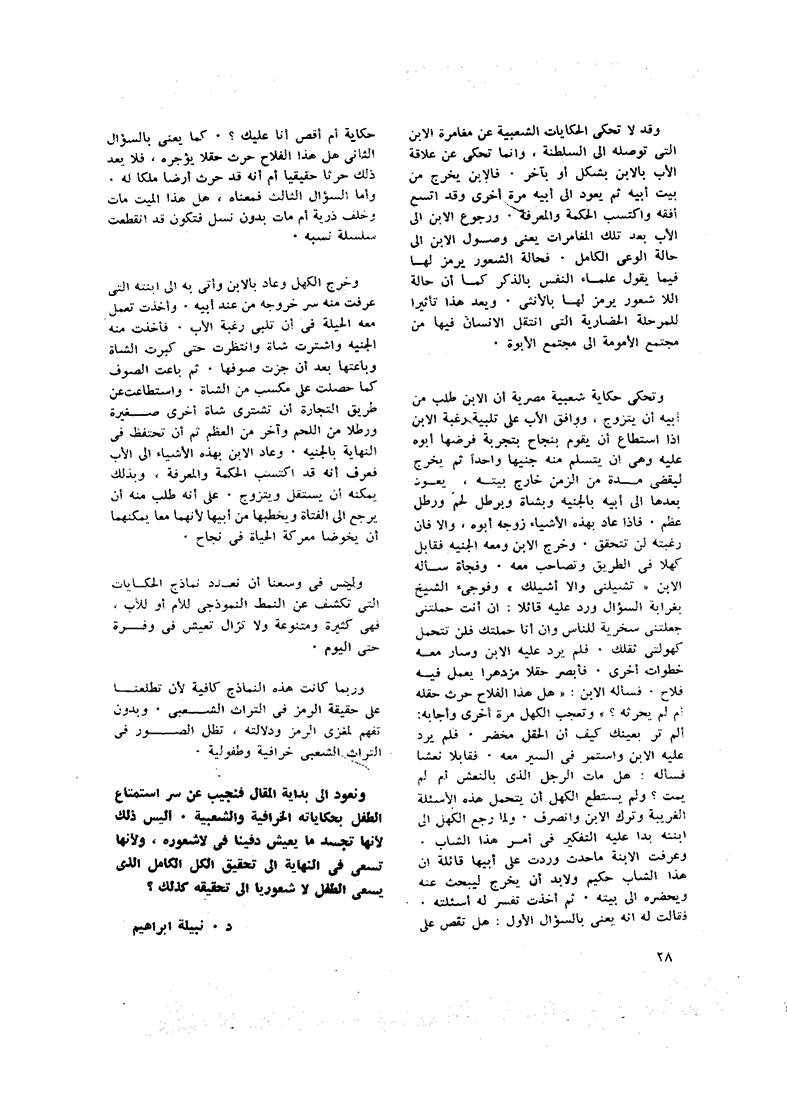 وقد لا تحكى الحكايات الشعبية عن مغامرة الابن
التى توصله الى السلطنة ، وانما تحكى عن علاقة
الأب بالابن بشكل أو بآخر · فالابن يخرج من
بيت أبيه ثم يعود الى أبيه مرة أخرى وقد اتسع
أفقه واكتسب الحكمة والمعرفة · ورجوع الابن الى
الأب بعد تلك المغامرات يعنى وصول الابن الى
حالة الوعى الكامل · فحالة الشعور يرمز لها
فيما يقول علماء النفس بالذكر كما أن حالة
اللا شعور يرمز لها بالأنثى · ويعد هذا تأثيرا
للمرحلة الحضارية التى انتقل الانسان فيها من
مجتمع الأمومة الى مجتمع الأبوة ·
وتحكى حكاية شعبية مصرية أن الابن طلب من
أبيه أن يتزوج ، ووافق الأب على تلبية رغبة الابن
اذا استطاع أن يقوم بنجاح بتجربة فرضها أبوه
عليه وهى ان يتسلم منه جنيها واحداً ثم يخرج
ليقضى مدة من الزمن خارج بيته ، يعود
بعدها الى أبيه بالجنيه وبشاة وبرطل لحم ورطل
عظم · فاذا عاد بهذه الأشياء زوجه أبوه ، والا فان
رغبته لن تتحقق · وخرج الابن ومعه الجنيه فقابل
كهلا فى الطريق وتصاحب معه · وفجأة سأله
الابن « تشيلنى والا أشيلك » وفوجىء الشيخ
بغرابة السؤال ورد عليه قائلا : ان أنت حملتنى
جعلتنى سخرية للناس وان أنا حملتك فلن تتحمل
كهولتى ثقلك · فلم يرد عليه الابن وسار معه
خطوات أخرى · فأبصر حقلا مزدهرا يعمل فيه
فلاح · فسأله الابن : « هل هذا الفلاح حرث حقله
أم لم يحرثه ؟ » وتعجب الكهل مرة أخرى وأجابه:
ألم تر بعينك كيف أن الحقل مخضر · فلم يرد
عليه الابن واستمر فى السير معه · فقابلا نعشا
فسأله : هل مات الرجل الذى بالنعش أم لم
يمت ؟ ولم يستطع الكهل أن يتحمل هذه الأسئلة
الغريبة وترك الابن وانصرف · ولما رجع الكهل الى
ابنته بدا عليه التفكير فى أمر هذا الشاب ·
وعرفت الابنة ماحدث وردت على أبيها قائلة ان
هذا الشاب حكيم ولابد أن يخرج ليبحث عنه
ويحضره الى بيته · ثم أخذت تفسر له أسئلته ·
فقالت له انه يعنى بالسؤال الأول : هل تقص على
حكاية أم أقص أنا عليك ؟ · كما يعنى بالسؤال
الثانى هل هذا الفلاح حرث حقلا يؤجره ، فلا يعد
ذلك حرثا حقيقيا أم أنه قد حرث أرضا ملكا له ·
وأما السؤال الثالث فمعناه ، هل هذا الميت مات
وخلف ذرية أم مات بدون نسل فتكون قد انقطعت
سلسلة نسبه ·
وخرج الكهل وعاد بالابن وأتى به الى ابنته التى
عرفت منه سر خروجه من عند أبيه · وأخذت تعمل
معه الحيلة فى أن تلبى رغبة الأب · فأخذت منه
الجنيه واشترت شاة وانتظرت حتى كبرت الشاة
وباعتها بعد أن جزت صوفها · ثم باعت الصوف
كما حصلت على مكسب من الشاة · واستطاعت عن
طريق التجارة أن تشترى شاة أخرى صغيرة
ورطلا من اللحم وآخر من العظم ثم أن تحتفظ فى
النهاية بالجنيه · وعاد الابن بهذه الأشياء الى الأب
فعرف أنه قد اكتسب الحكمة والمعرفة ، وبذلك
يمكنه أن يستقل ويتزوج · على أنه طلب منه أن
يرجع الى الفتاة ويخطبها من أبيها لأنهما معا يمكنهما
أن يخوضا معركة الحياة فى نجاح ·
وليس فى وسعنا أن نعدد نماذج الحكايات
التى تكشف عن النمط النموذجى للأم أو للأب ،
فهى كثيرة ومتنوعة ولا تزال تعيش فى وفرة
حتى اليوم ·
وربما كانت هذه النماذج كافية لأن تطلعنا
على حقيقة الرمز فى التراث الشعبى · وبدون
تفهم لمغزى الرمز ودلالته ، تظل الصور فى
التراث الشعبى خرافية وطفولية ·
ونعود الى بداية المقال فنجيب عن سر استمتاع
الطفل بحكاياته الخرافية والشعبية · أليس ذلك
لأنها تجسد ما يعيش دفينا فى لاشعوره ، ولأنها
تسعى فى النهاية الى تحقيق الكل الكامل الذى
يسعى الطفل لا شعوريا الى تحقيقه كذلك ؟
د · نبيلة ابراهيم
٢٨